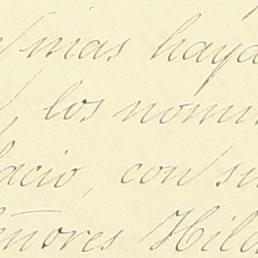 mas haya
los nomi
lacio, con su
eñores Hild